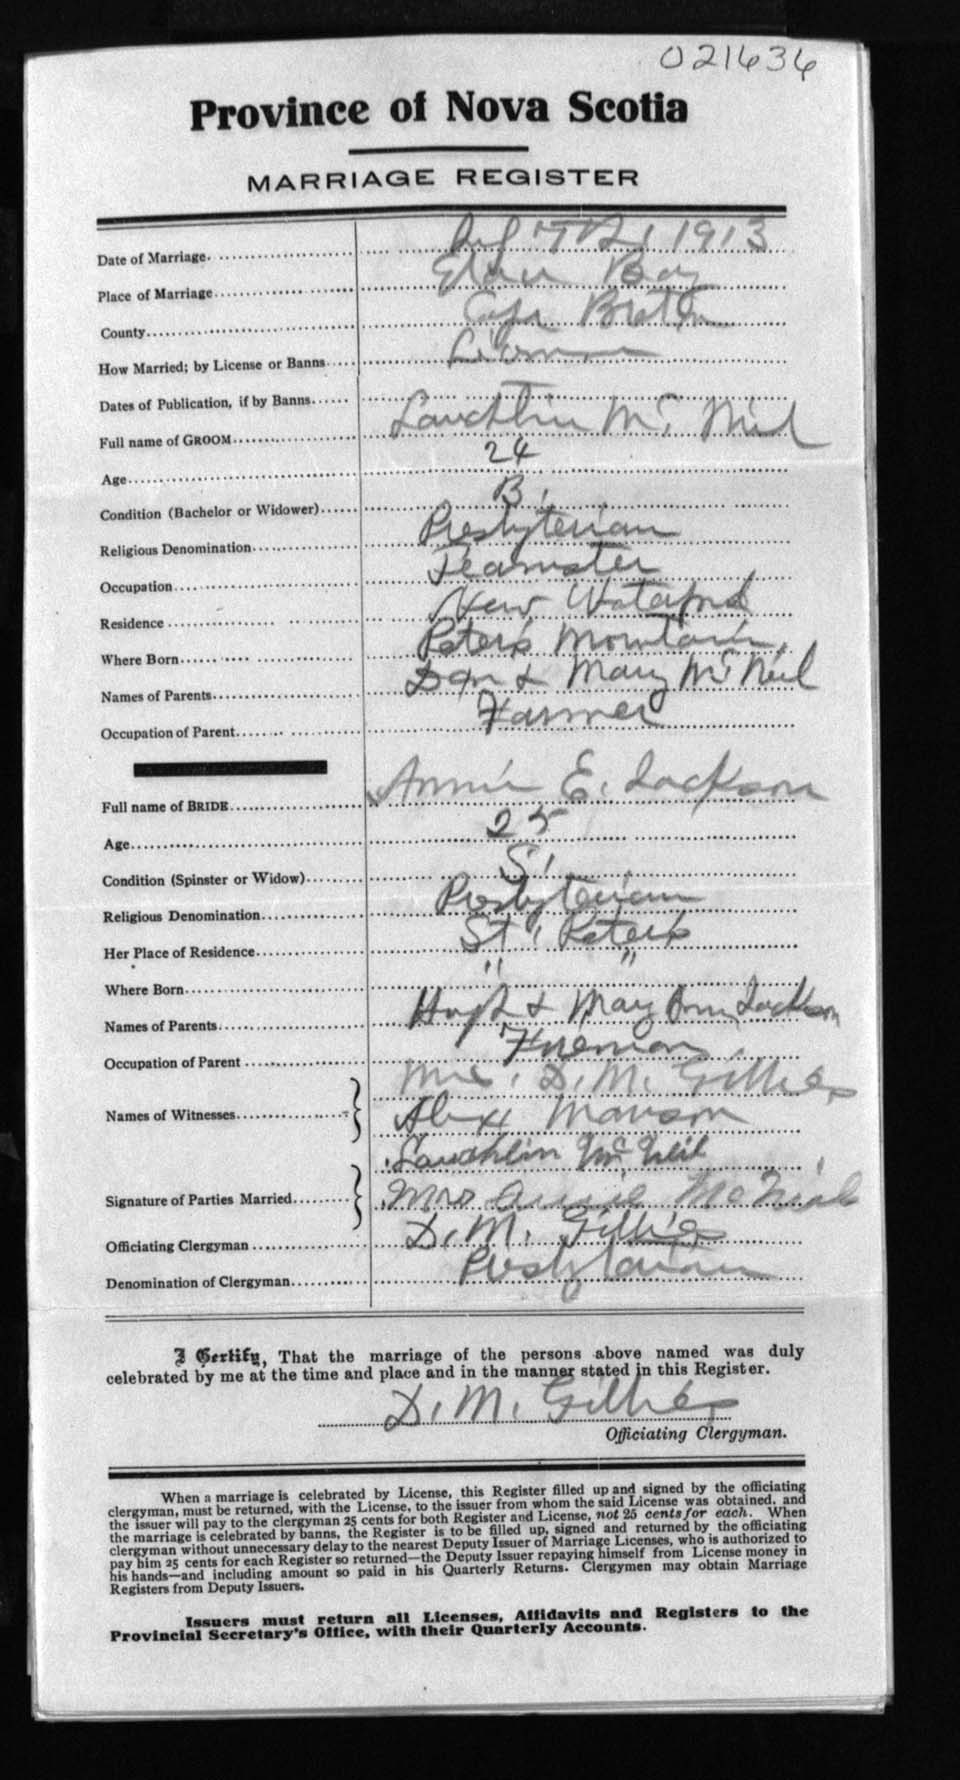 021636
Province of Nova Scotia
MARRIAGE REGISTER
Date of Marriage 1913
Place of Marriage Bay
County Cape Breton
How Married; by License or Banns License
Dates of Publication, if by Banns
Full name of GROOM Lauchlin Mc Neil
Age 24
Condition (Bachelor or Widower) B.
Religious Denomination Presbyterian
Occupation Teamster
Residence New Waterford
Where Born Peter's Mountain
Names of Parents Dan & Mary Mc Neil
Occupation of Parent Farmer
Full name of BRIDE Annie E. Jackson
Age 25
Condition (Spinster or Widow) S.
Religious Denomination Presbyterian
Her Place of Residence St. Peter's
Where Born " "
Names of Parents Hugh & Mary Ann Jackson
Occupation of Parent Fireman
Names of Witnesses Mrs. D. M. Gillies
Alex Manson
Signature of Parties Married Lauchlin Mc Neil
Mrs Annie McNeil
Officiating Clergyman D. M. Gillies
Denomination of Clergyman Presbyterian
I Certify, That the marriage of the persons above named was duly
celebrated by me at the time and place and in the manner stated in this Register.
D. M. Gillies
Officiating Clergyman.
When a marriage is celebrated by License, this Register filled up and signed by the officiating
clergyman, must be returned, with the License, to the issuer from whom the said License was obtained, and
the issuer will pay to the clergyman 25 cents for both Register and License, not 25 cents for each. When
the marriage is celebrated by banns, the Register is to be filled up, signed and returned by the officiating
clergyman without unnecessary delay to the nearest Deputy Issuer of Marriage Licenses, who is authorized to
pay him 25 cents for each Register so returned—the Deputy Issuer repaying himself from License money in
his hands—and including amount so paid in his Quarterly Returns. Clergymen may obtain Marriage
Registers from Deputy Issuers.
Issuers must return all Licenses, Affidavits and Registers to the
Provincial Secretary's Office, with their Quarterly Accounts.